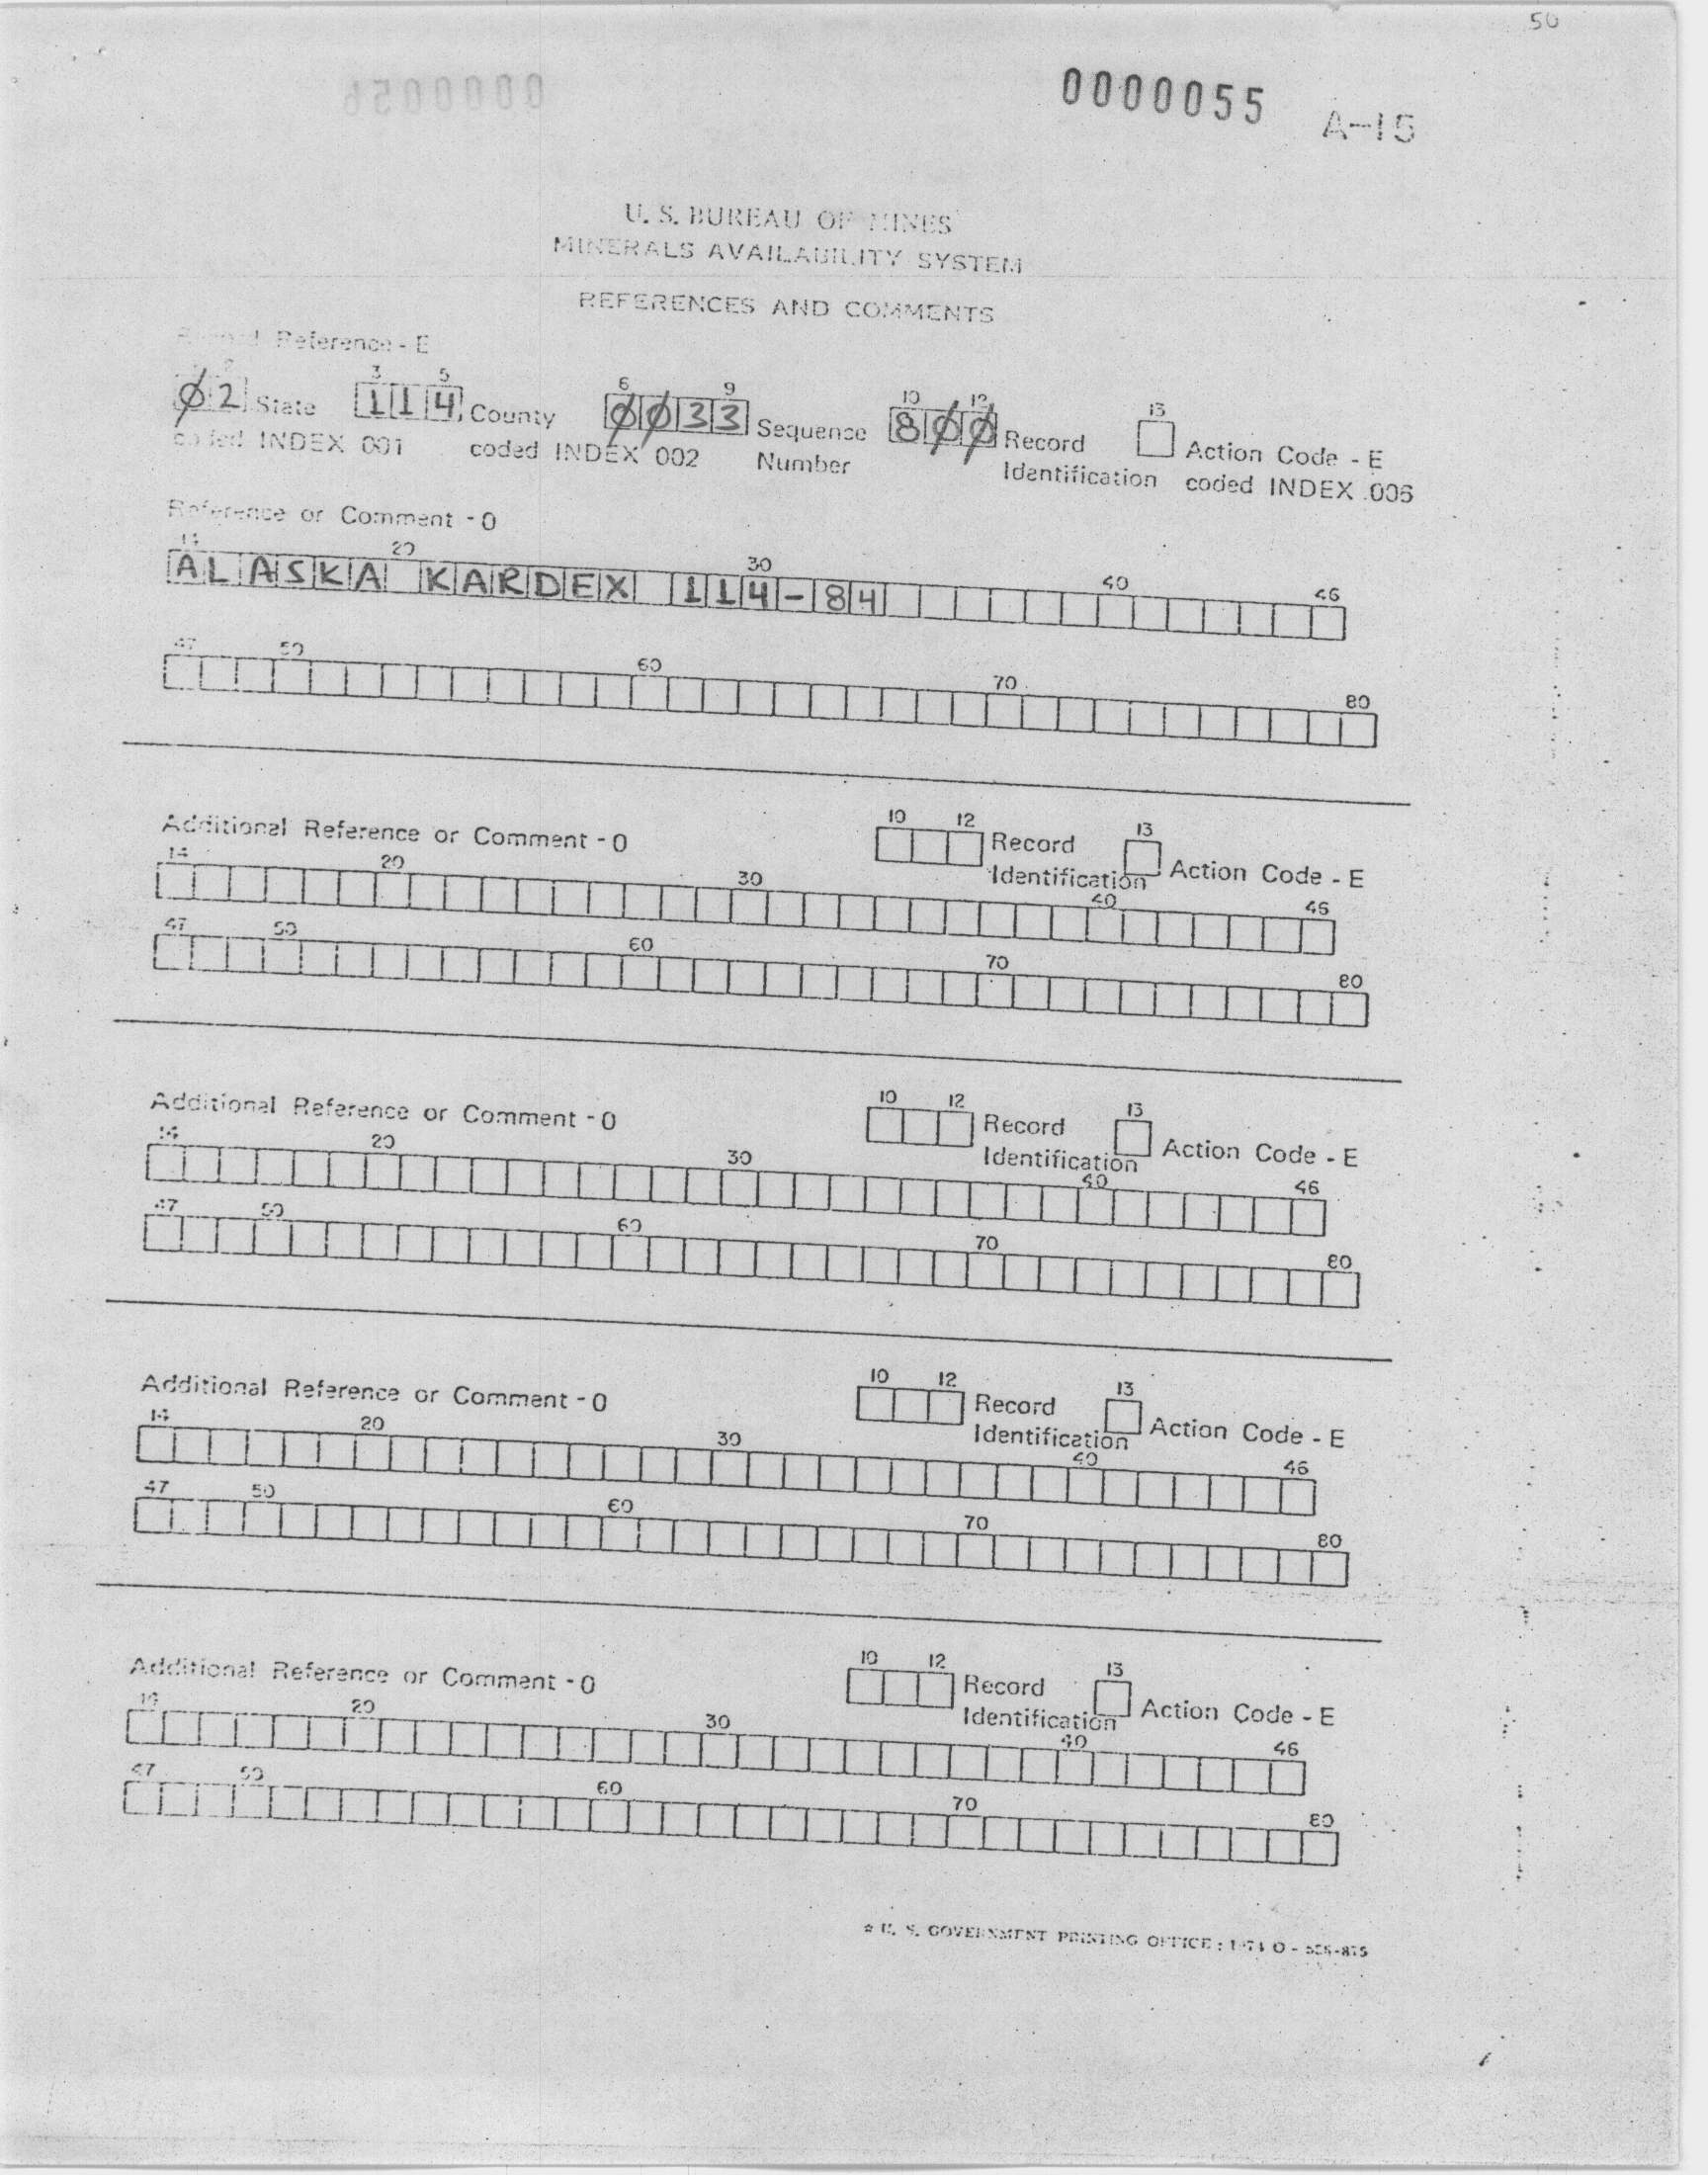 50
0000055
A-15
U. S. BUREAU OF MINES
MINERALS AVAILABILITY SYSTEM
REFERENCES AND COMMENTS
Reference - E
3 5 6 9 10 12 13
02 State 114 County 0033 Sequence 800 Record Action Code - E
coded INDEX 001 coded INDEX 002 Number Identification coded INDEX 006
Reference or Comment - O
14 20 30 40 46
ALASKA KARDEX 114-84
47 50 60 70 80
Additional Reference or Comment - O 10 12 Record 13
Identification Action Code - E
14 20 30 40 46
47 50 60 70 80
Additional Reference or Comment - O 10 12 Record 13
Identification Action Code - E
14 20 30 40 46
47 50 60 70 80
Additional Reference or Comment - O 10 12 Record 13
Identification Action Code - E
14 20 30 40 46
47 50 60 70 80
Additional Reference or Comment - O 10 12 Record 13
Identification Action Code - E
14 20 30 40 46
47 50 60 70 80
☆ U. S. GOVERNMENT PRINTING OFFICE :